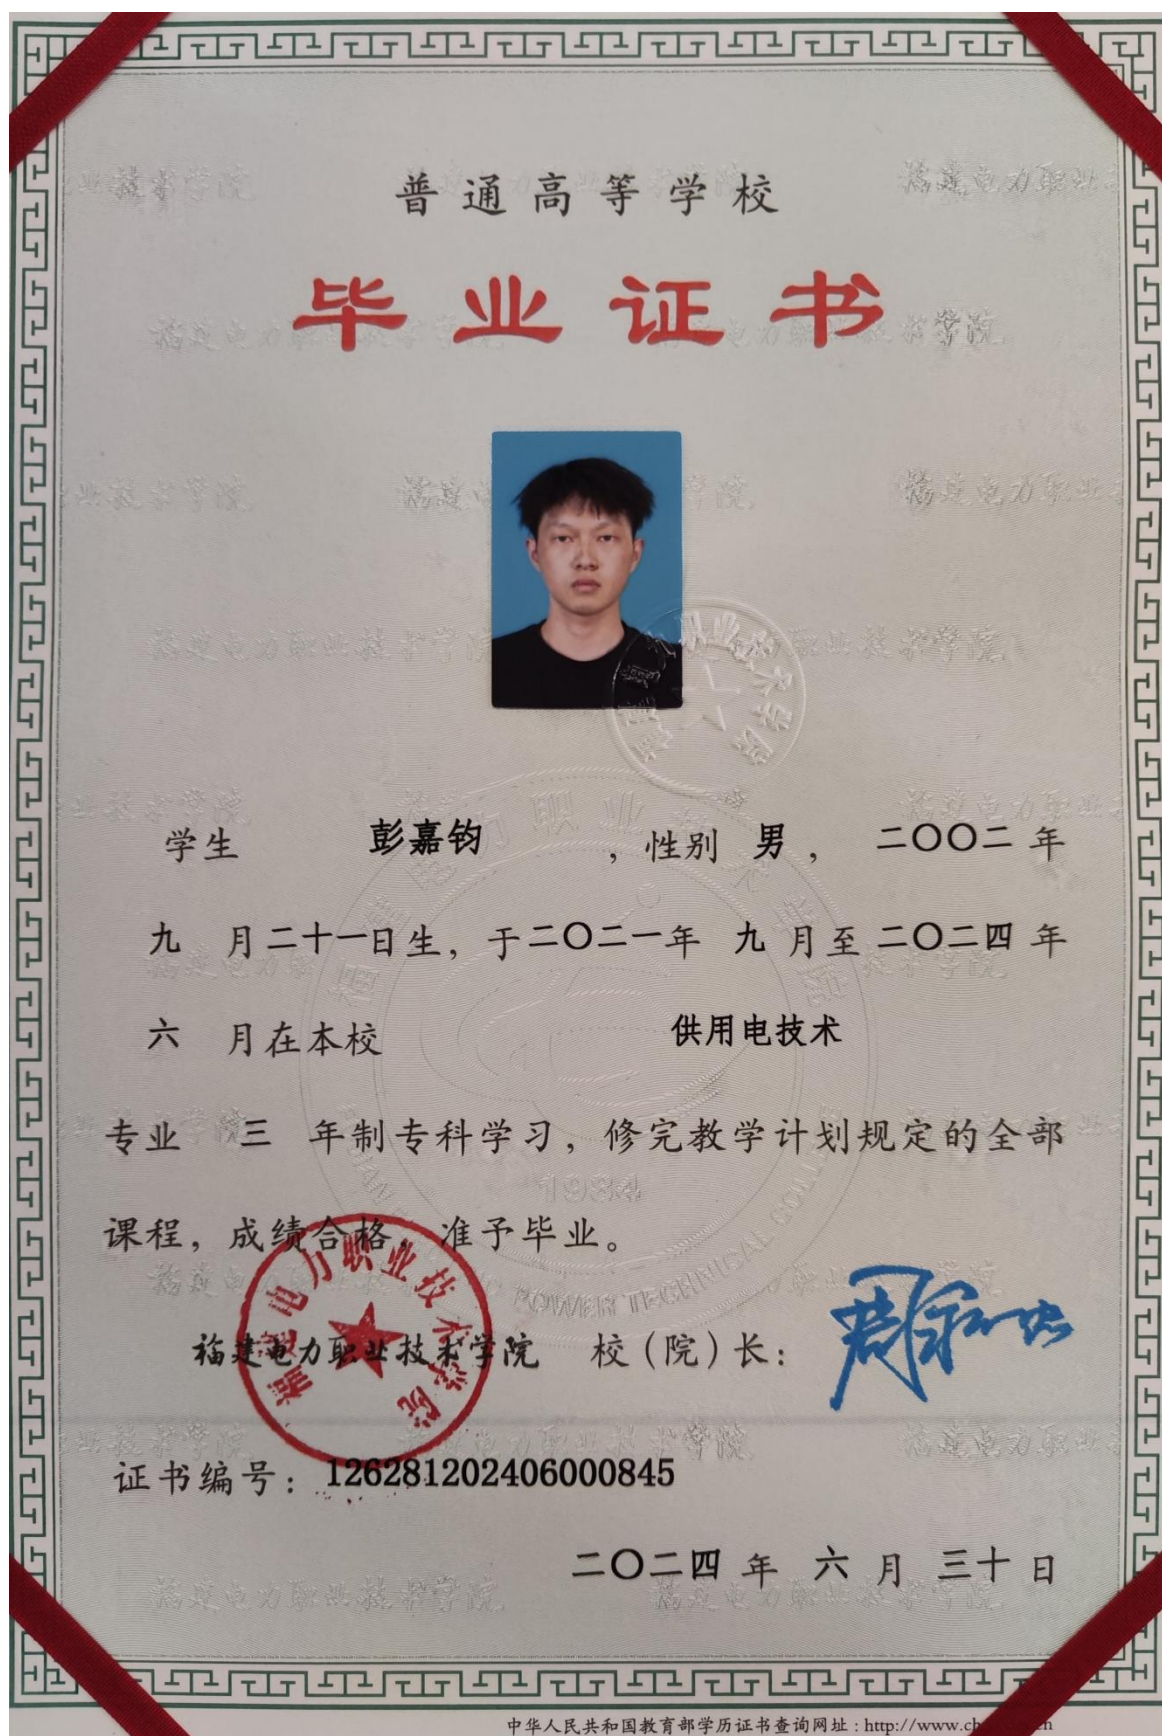 普通高等学校
毕业证书
学生 彭嘉钧 ，性别 男， 二〇〇二 年
九 月二十一日生，于二〇二一年 九 月至 二〇二四 年
六 月在本校 供用电技术
专业 三 年制专科学习，修完教学计划规定的全部
课程，成绩合格，准予毕业。
福建电力职业技术学院 校（院）长：
福建电力职业技术学院
证书编号：126281202406000845
二〇二四 年 六 月 三十 日
中华人民共和国教育部学历证书查询网址：http://www.ch
福建电力职业技术学院
1984
POWER TECHNICAL